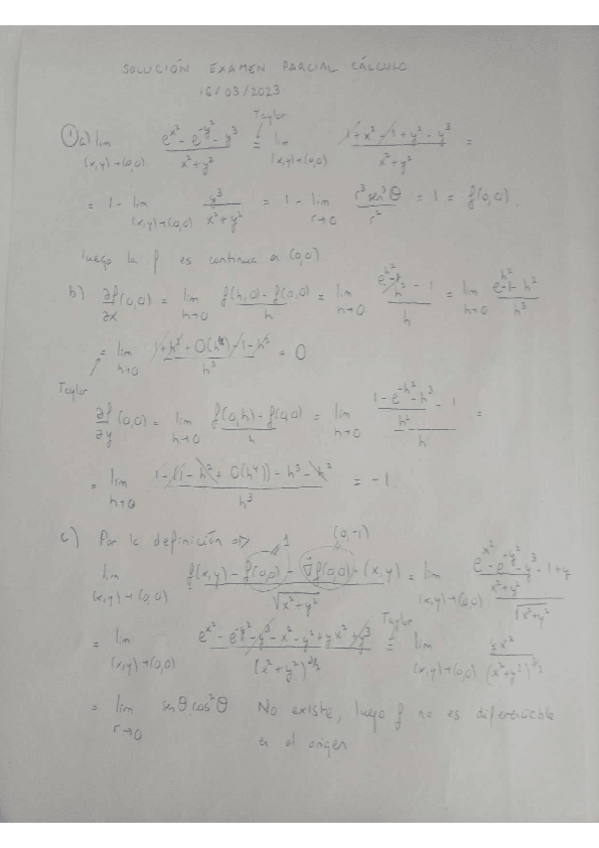 SOLUCIÓN EXAMEN PARCIAL CÁLCULO
16/03/2023
Taylor
① a) lim (x,y)→(0,0) (e^{x²} - e^{-y²} - y³)/(x²+y²) = lim (x,y)→(0,0) (1+x²-1+y²-y³)/(x²+y²) =
= 1 - lim (x,y)→(0,0) y³/(x²+y²) = 1 - lim r→0 r³sen³θ/r² = 1 = f(0,0).
luego la f es continua en (0,0)
b) ∂f/∂x (0,0) = lim h→0 (f(h,0) - f(0,0))/h = lim h→0 ((e^{h²}-1)/h² - 1)/h = lim h→0 (e^{h²}-1-h²)/h³
= lim h→0 (1+h²+O(h⁴)-1-h²)/h³ = 0
Taylor
∂f/∂y (0,0) = lim h→0 (f(0,h) - f(0,0))/h = lim h→0 ((1-e^{-h²}-h³)/h² - 1)/h =
= lim h→0 (1-(1-h²+O(h⁴))-h³-h²)/h³ = -1
c) Por la definición ⇒ 1 (0,-1)
lim (x,y)→(0,0) (f(x,y) - f(0,0) - ∇f(0,0)·(x,y))/√(x²+y²) = lim (x,y)→(0,0) ((e^{x²}-e^{-y²}-y³)/(x²+y²) - 1+y)/√(x²+y²)
= lim (x,y)→(0,0) (e^{x²}-e^{-y²}-y³-x²-y²+yx²+y³)/(x²+y²)^{3/2} = Taylor lim (x,y)→(0,0) yx²/(x²+y²)^{3/2}
= lim r→0 senθ cos²θ No existe, luego f no es diferenciable
en el origen